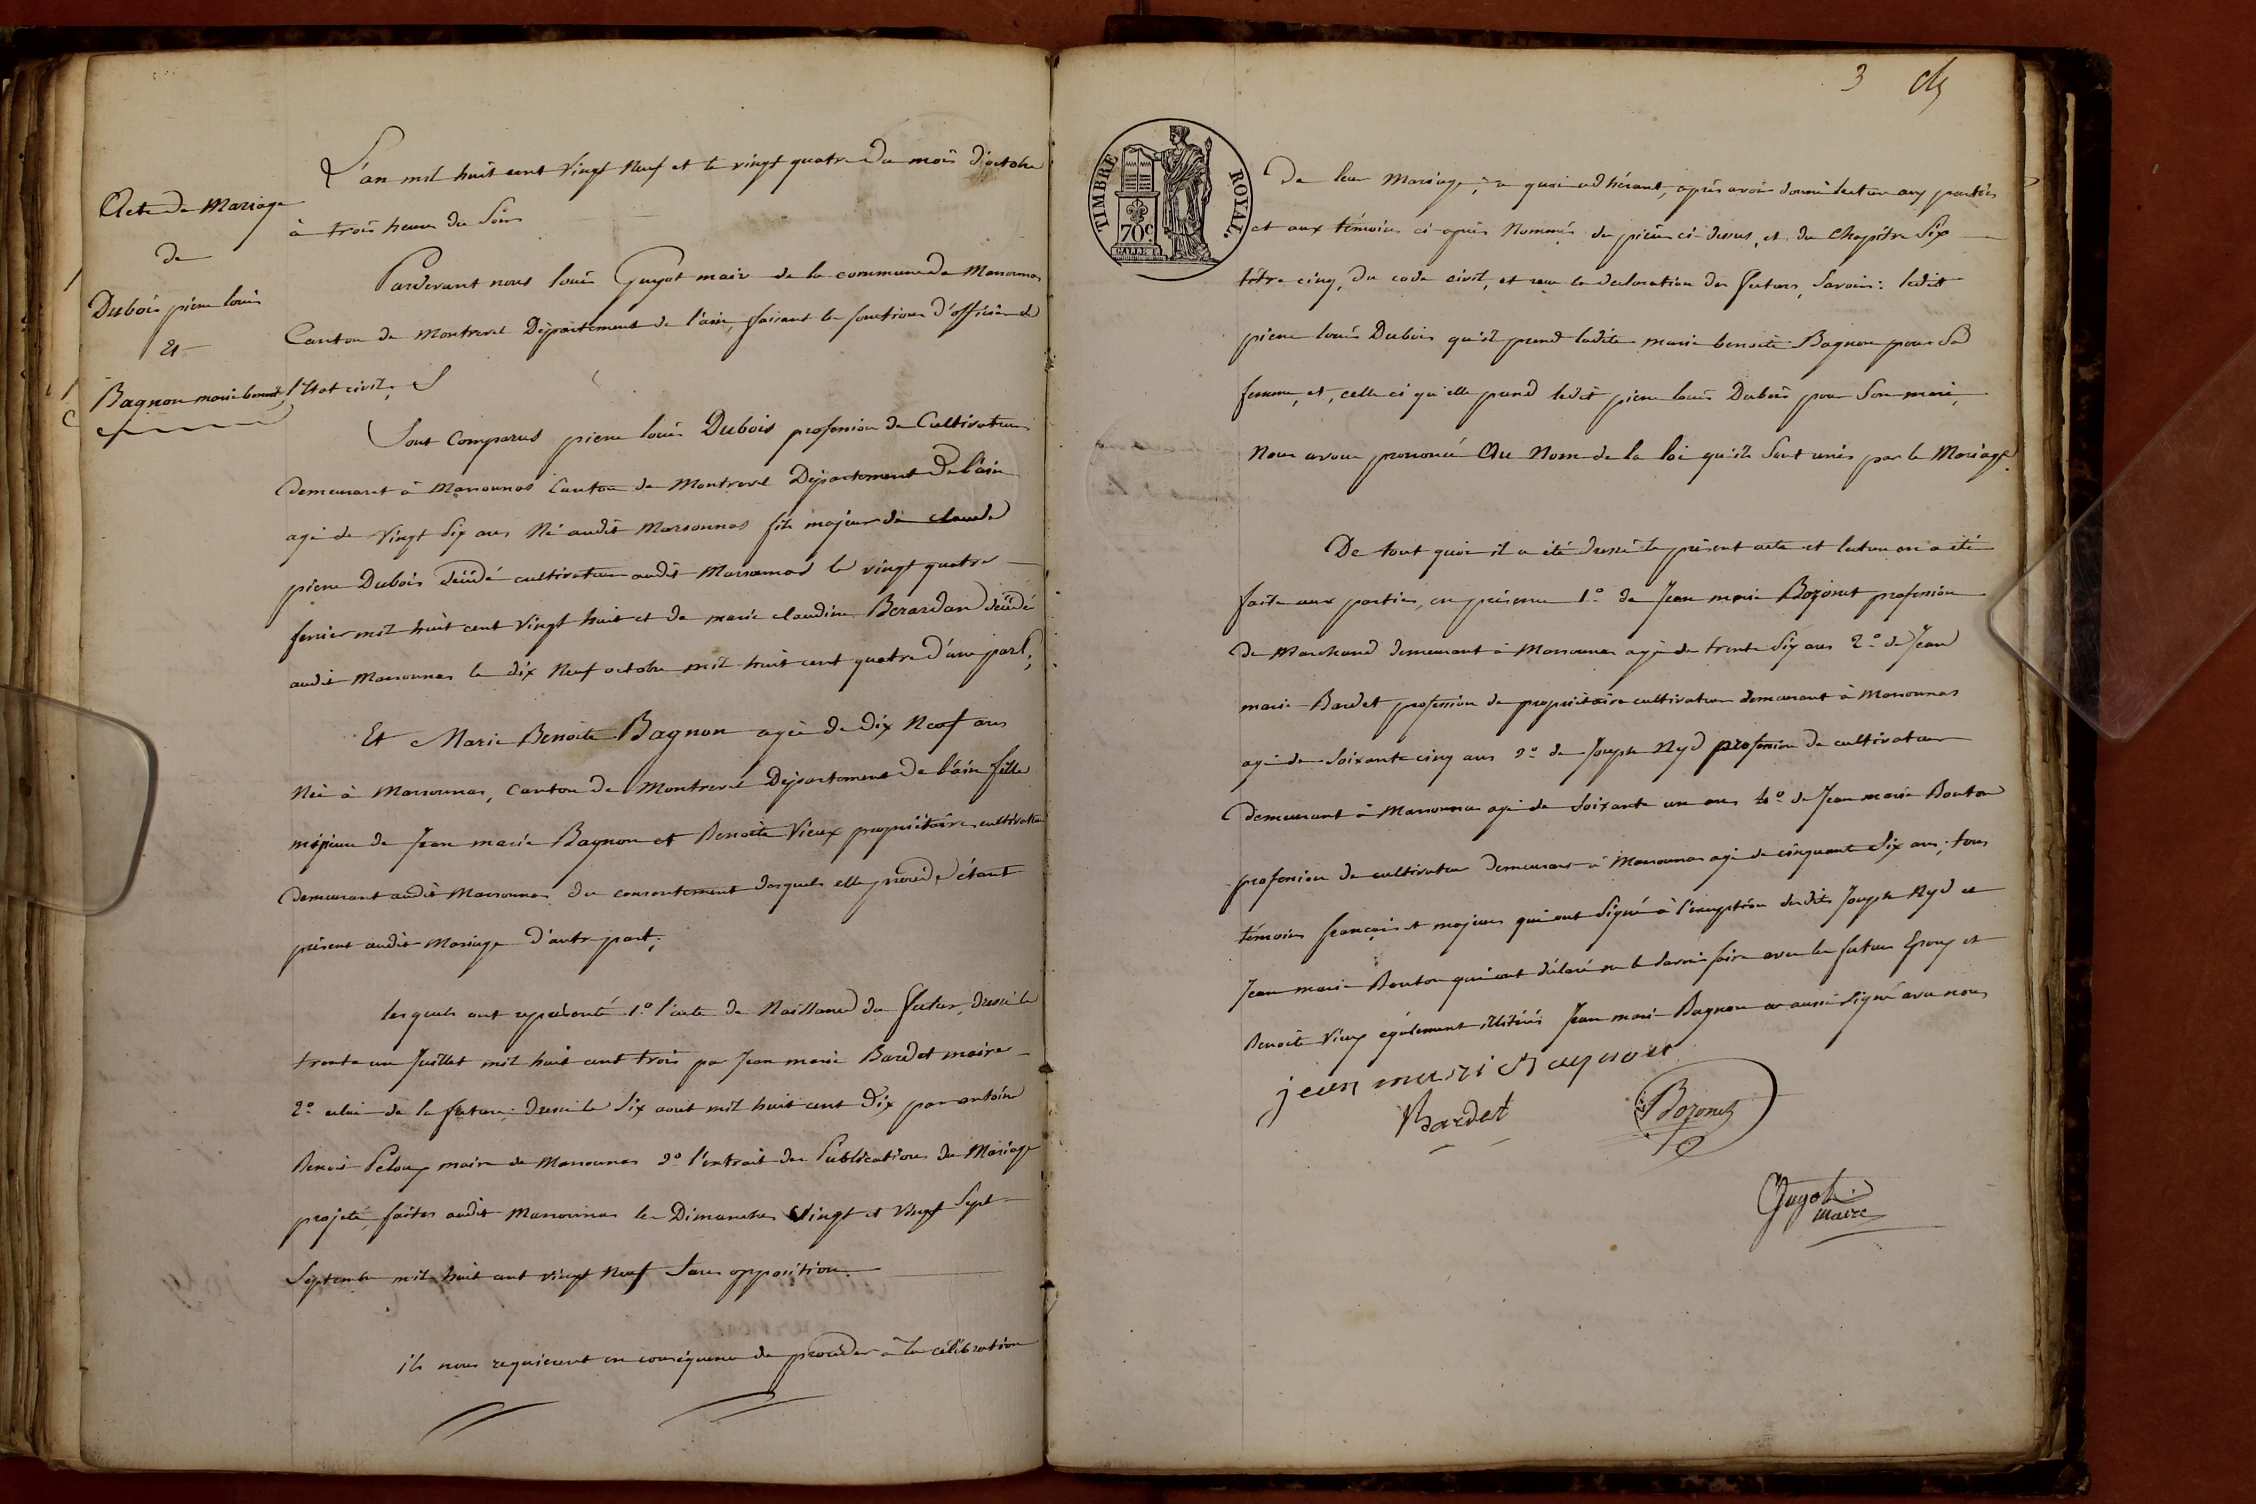 Acte de Mariage
de
Dubois pierre louis
Et
Bagnon marie benoite
L'an mil huit cent vingt Neuf et le vingt quatre du mois d'octobre
à trois heures du Soir
Pardevant nous louis Guyot maire de la commune de Marsonnas
Canton de Montrevel Département de l'ain, faisant les fonctions d'officier de
l'Etat civil,
Sont Comparus pierre louis Dubois profession de Cultivateur
demeurant à Marsonnas Canton de Montrevel Département De l'ain
agé de vingt Six ans Né audit Marsonnas fils majeur de claude
pierre Dubois décédé cultivateur audit Marsonnas le vingt quatre
fevrier mil huit cent vingt huit et de marie claudine Berardan décédée
audit Marsonnas le dix Neuf octobre mil huit cent quatre d'une part,
Et Marie Benoite Bagnon agée de Dix Neuf ans
Née à Marsonnas, Canton de Montrevel Département De l'ain fille
mineure de Jean marie Bagnon et Benoite Vieux propriétaires cultivateurs
demeurant audit Marsonnas du consentement desquels elle procède, étant
présent audit Mariage D'autre part;
lesquels ont représenté 1.o l'acte de Naissance du futur, dressé le
trente un Juillet mil huit cent trois par Jean marie Bardet maire
2.o celui de la future: dressé le Six aout mil huit cent Dix par antoine
Benoit Peloux maire de Marsonnas 3.o l'extrait des Publications du Mariage
projeté, faites audit Marsonnas les Dimanches Vingt et Vingt Sept
Septembre mil huit cent vingt Neuf Sans opposition.
ils nous requierent en conséquence de procéder à la célébration
3
TIMBRE ROYAL.
70c
De leur Mariage; à quoi adhérant, après avoir donné lecture aux parties
et aux témoins ci-après Nommés des pièces ci-dessus, et du Chapitre Six
titre cinq, du code civil, et reçu la déclaration des futurs, Savoir: ledit
pierre louis Dubois qu'il prend ladite marie benoite Bagnon pour Sa
femme, et, celle ci qu'elle prend ledit pierre louis Dubois pour Son mari,
Nous avons prononcé Au Nom de la loi qu'ils Sont unis par le Mariage.
De tout quoi il a été dressé le présent acte et lecture en a été
faite aux parties, en présence 1.o de Jean marie Bozonet profession
de Marchand demeurant à Marsonnas agé de trente Six ans 2.o de Jean
marie Bardet profession de propriétaire cultivateur demeurant à Marsonnas
agé de Soixante cinq ans 3.o de Joseph Nyd profession de cultivateur
demeurant à Marsonnas agé de Soixante un ans 4.o de Jean marie Bouton
profession de cultivateur demeurant à Marsonnas agé de cinquante Six ans; tous
témoins français et majeurs qui ont Signé à l'exception desdits Joseph Nyd et
Jean marie Bouton qui ont déclaré ne le Savoir faire avec les futurs Epoux et
Benoite Vieux également illitérés Jean marie Bagnon a aussi Signé avec nous
jean marie Bagnon
Bardet
Bozonet
Guyot
maire